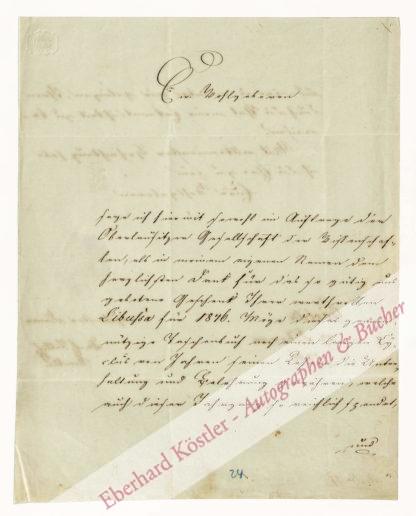 Ew. Wohlgeboren
sage ich hiermit sowohl im Auftrage der
Oberlausitzer Gesellschaft der Wissenschaf-
ten, als in meinem eigenen Namen den
herzlichsten Dank für das so gütig uns
gebotene Geschenk Ihrer werthvollen
Libussa für 1846. Möge dieses
Taschenbuch noch einen langen Cy-
clus von Jahren seinen Lesern die Unter-
haltung und Belehrung gewähren, welche
auch dieser Jahrgang so reichlich spendet,
und
24.
Eberhard Köstler - Autographen & Bücher